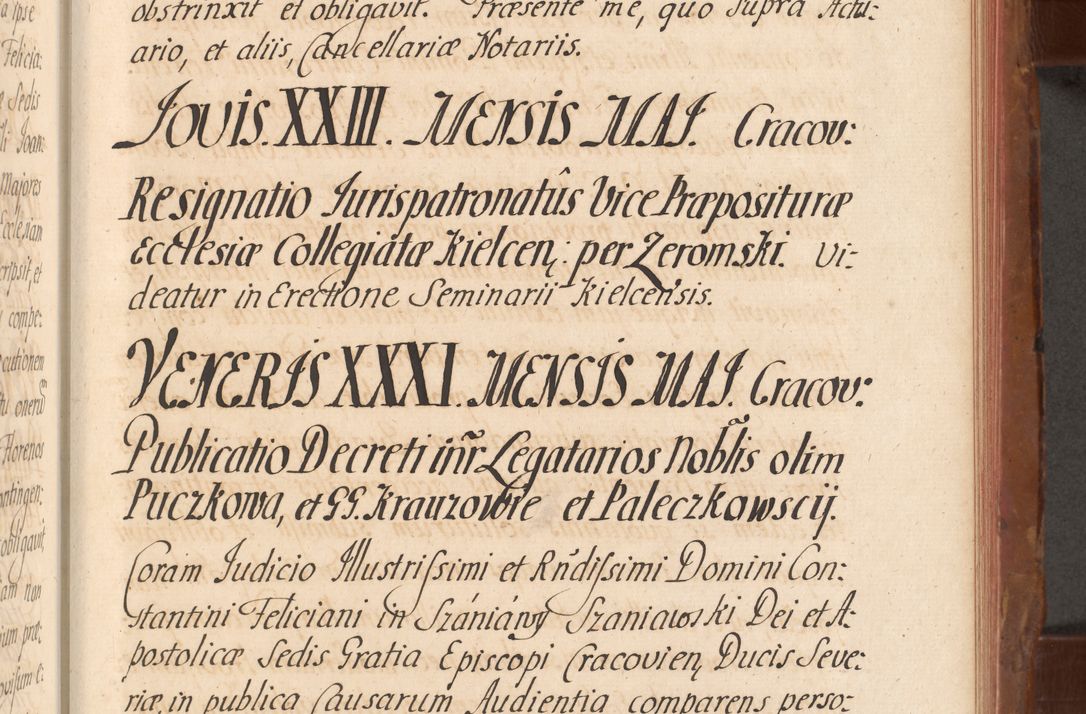 a ipse
Felicia:
e Sedis
li Joan:
Majores
Ecclesiam
cripsit, et
compe:
cutionem
tu
Florenos
ontingen:
obligavit
iam non
ium præ:
obstrinxit et obligavit. Præsente me, quo supra Actu:
ario, et aliis, Cancellariæ Notariis.
JOVIS. XXIII. MENSIS MAI. Cracov:
Resignatio Jurispatronatûs Vice Præposituræ
Ecclesiæ Collegiatæ Kielcen: per Zeromski. Vi:
deatur in Erectione Seminarii Kielcensis.
VENERIS XXXI. MENSIS MAI. Cracov:
Publicatio Decreti inr̃ Legatarios Nob̃lis olim
Puczkowa, et GG. Krauzowie et Paleczkowscij.
Coram Judicio Illustrissimi et Rñdissimi Domini Con:
stantini Feliciani in Szániáwy Szaniawski Dei et A:
postolicæ Sedis Gratia Episcopi Cracovien, Ducis Seve:
riæ, in publica Causarum Audientia comparens perso: